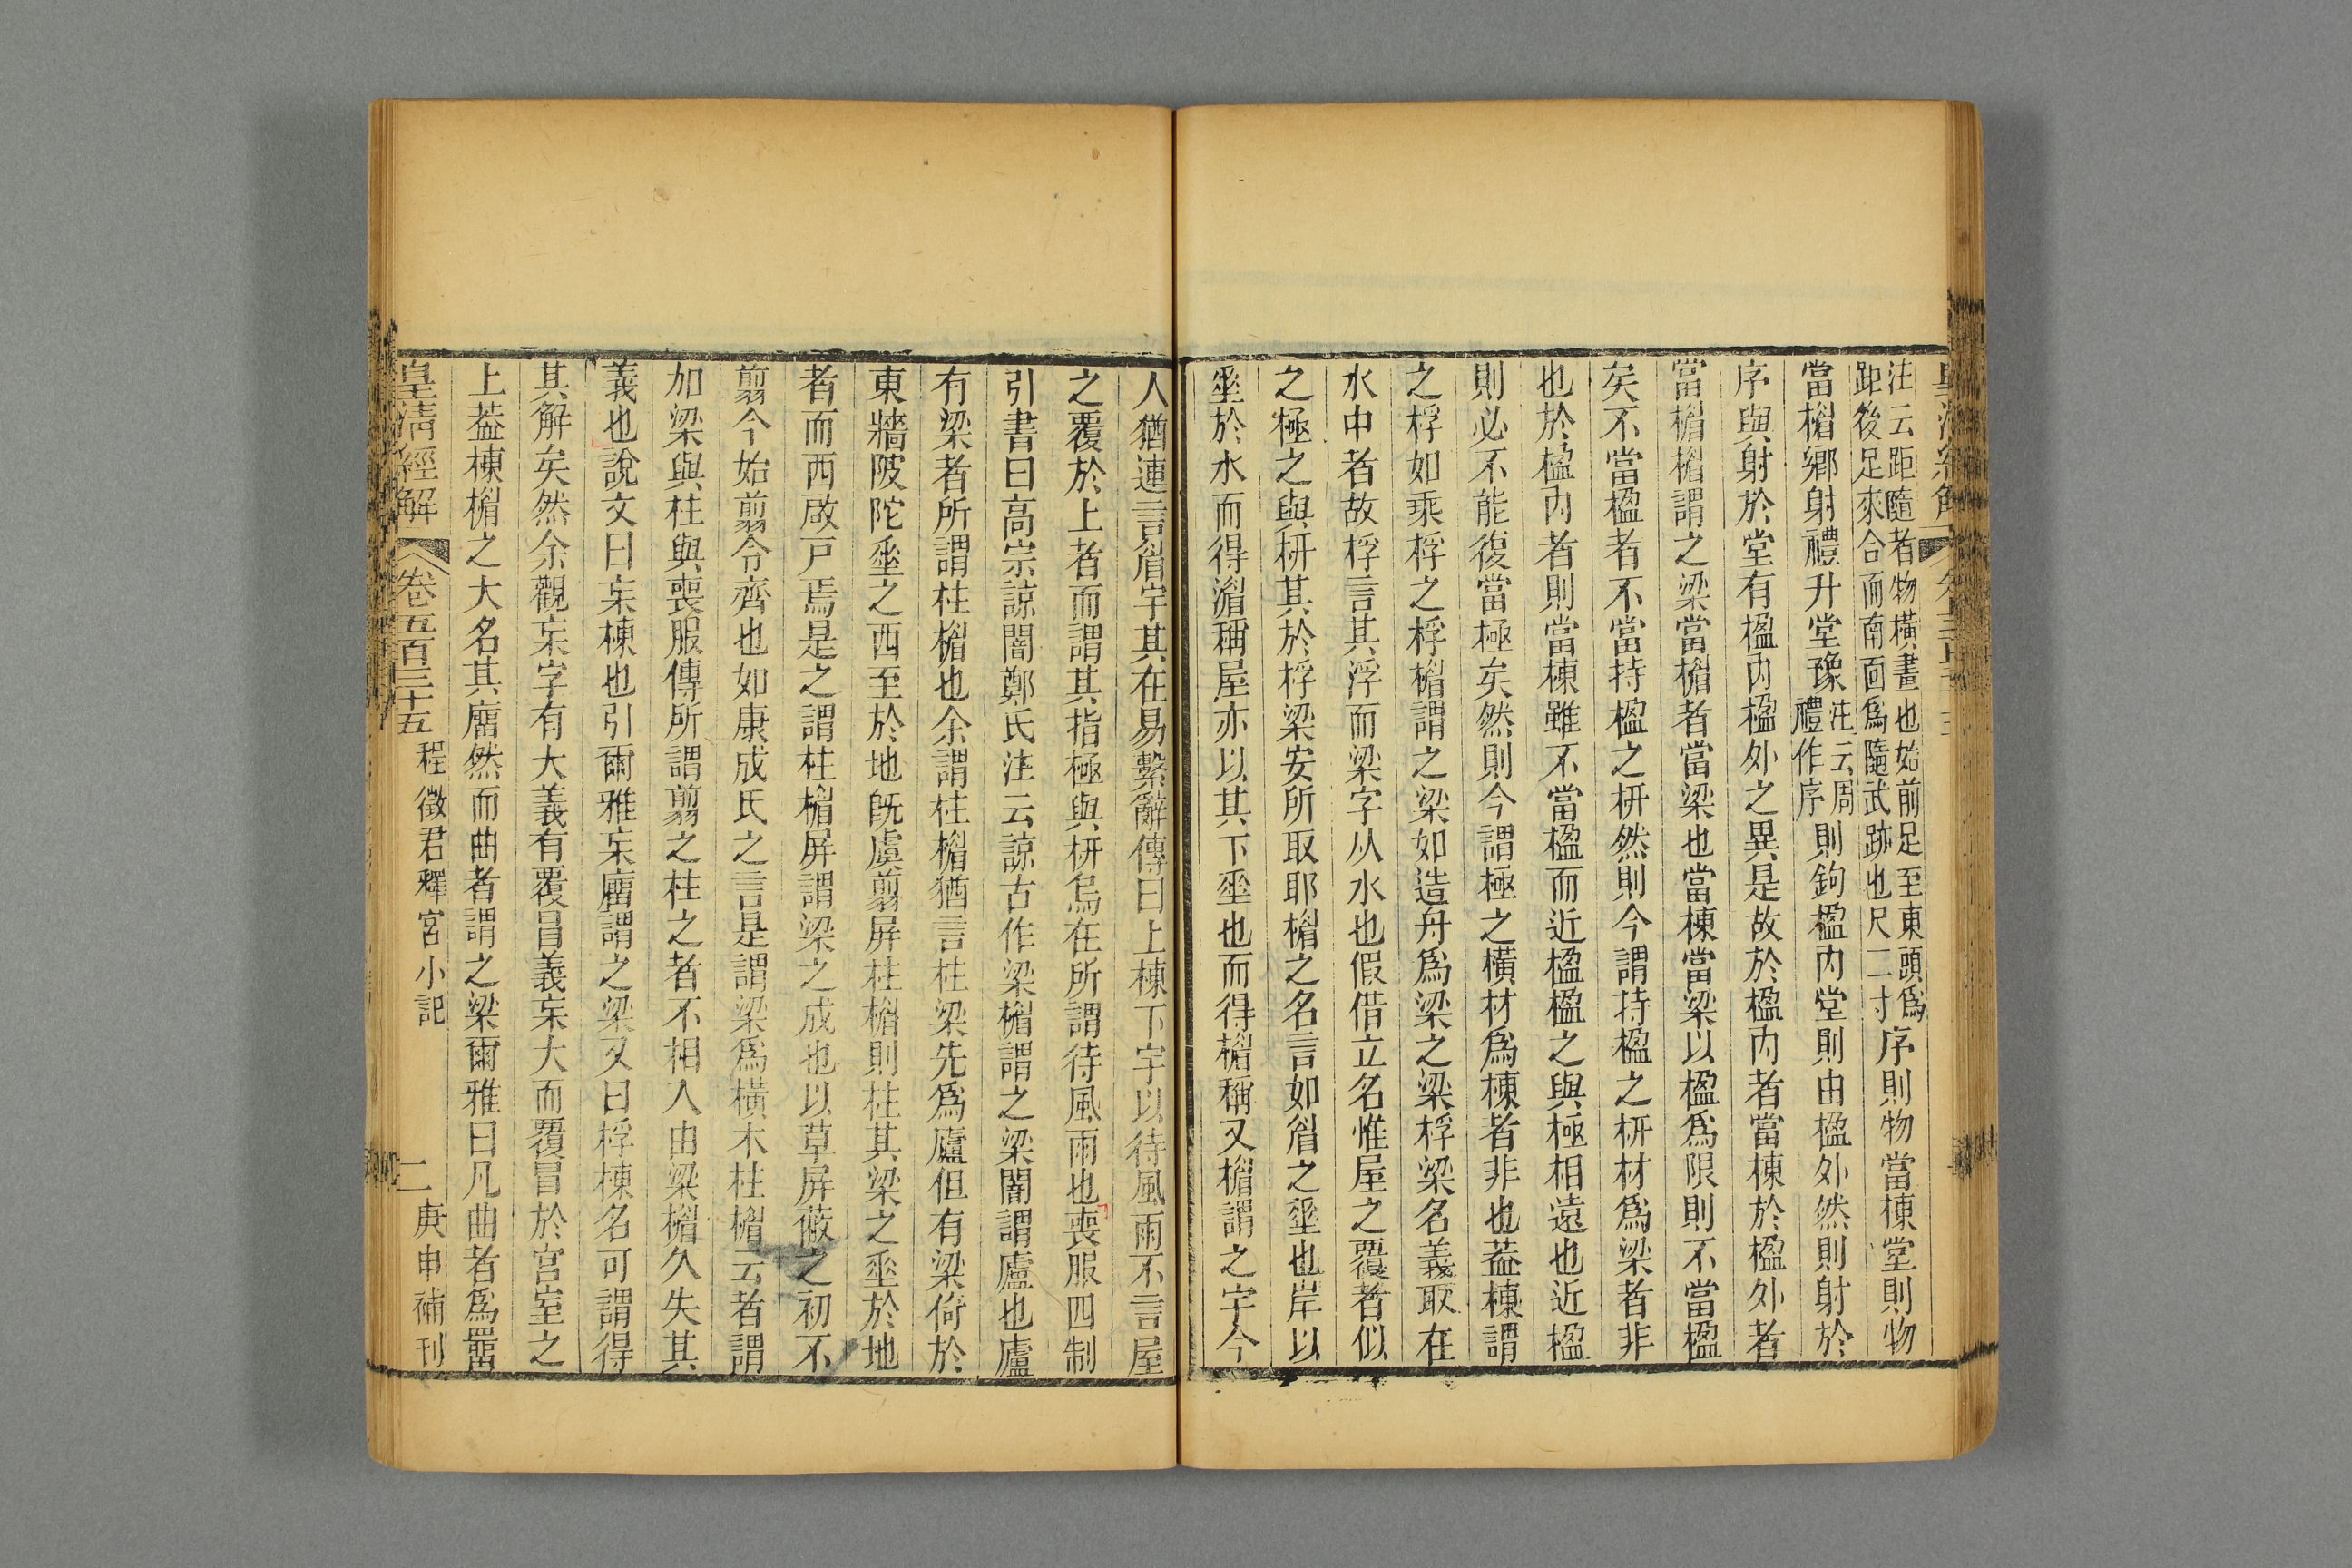 注云距隨者物橫畫也始前足至東頭爲
距後足來合而南面爲隨武跡也尺二寸
序則物當棟堂則物
當楣鄉射禮升堂豫
注云周
禮作序
則鉤楹內堂則由楹外然則射於
序與射於堂有楹內楹外之異是故於楹內者當棟於楹外者
當楣楣謂之梁當楣者當梁也當棟當梁以楹爲限則不當楹
矣不當楹者不當持楹之枅然則今謂持楹之枅材爲梁者非
也於楹內者則當棟雖不當楹而近楹楹之與極相遠也近楹
則必不能復當極矣然則今謂極之橫材爲棟者非也葢棟謂
之桴如乘桴之桴楣謂之梁如造舟爲梁之梁桴梁名義取在
水中者故桴言其浮而梁字从水也假借立名惟屋之覆者似
之極之與枅其於桴梁安所取耶楣之名言如眉之垂也岸以
垂於水而得湄稱屋亦以其下垂也而得楣稱又楣謂之宇今
人猶連言眉宇其在易繫辭傳曰上棟下宇以待風雨不言屋
之覆於上者而謂其指極與枅烏在所謂待風雨也喪服四制
引書曰高宗諒闇鄭氏注云諒古作梁楣謂之梁闇謂廬也廬
有梁者所謂柱楣也余謂柱楣猶言柱梁先爲廬但有梁倚於
東牆陂陀垂之西至於地旣虞翦屏柱楣則柱其梁之垂於地
者而西啟戸焉是之謂柱楣屏謂梁之成也以草屏蔽之初不
翦今始翦令齊也如康成氏之言是謂梁爲橫木柱楣云者謂
加梁與柱與喪服傳所謂翦之柱之者不相入由梁楣久失其
義也說文曰宋棟也引爾雅宋廇謂之梁又曰桴棟名可謂得
其解矣然余觀宋字有大義有覆冒義宋大而覆冒於宮室之
上葢棟楣之大名其廇然而曲者謂之梁爾雅曰凡曲者爲罶
皇淸經解
卷五百三十五
程徵君釋宮小記
二
庚申補刊